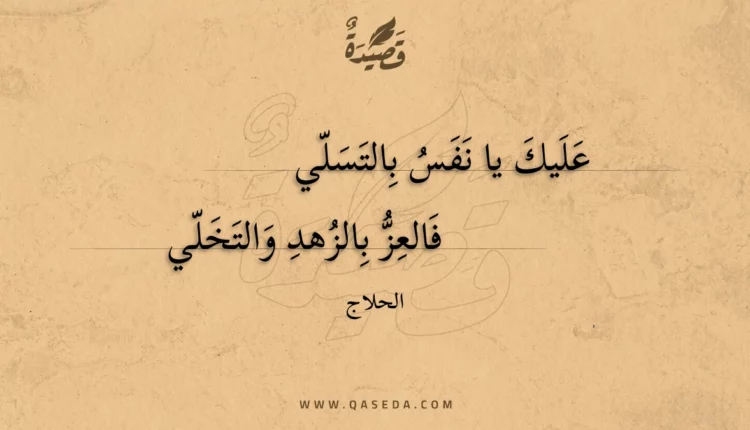 قَصِيْدَةٌ
عَلَيكَ يا نَفَسُ بِالتَسَلّي
فَالعِزُّ بِالزُهدِ وَالتَخَلّي
الحلاج
WWW.QASEDA.COM